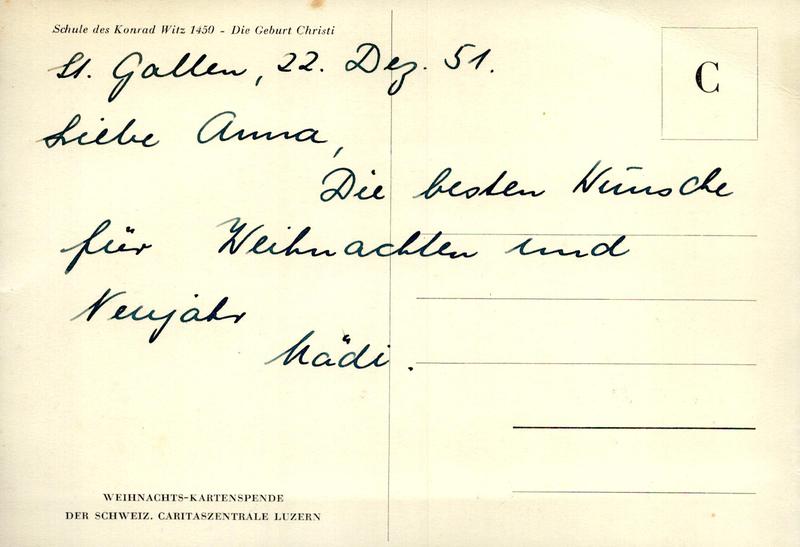 Schule des Konrad Witz 1450 - Die Geburt Christi
St. Gallen, 22. Dez. 51.
C
Liebe Anna,
Die besten Wünsche
für Weihnachten und
Neujahr
Mädi.
WEIHNACHTS-KARTENSPENDE
DER SCHWEIZ. CARITASZENTRALE LUZERN